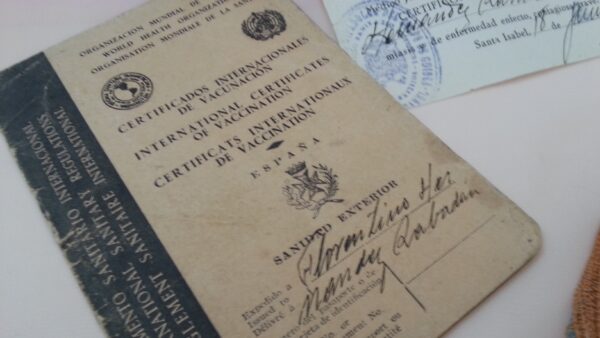 ORGANIZACION MUNDIAL DE
WORLD HEALTH ORGANIZAT
ORGANISATION MONDIALE DE LA SAN
CERTIFICADOS INTERNACIONALES
DE VACUNACIÓN
INTERNATIONAL CERTIFICATES
OF VACCINATION
CERTIFICATS INTERNATIONAUX
DE VACCINATION
ESPAÑA
SANIDAD EXTERIOR
Expedido a
Issued to
Délivré à
Florentino Her
nandez Rabadan
MENTO SANITARIO INTERNACIONAL
RNATIONAL SANITARY REGULATIONS
GLEMENT SANITAIRE INTERNATIONAL
CERTIF
Hernandez
de enfermedad
Santa Isabel,